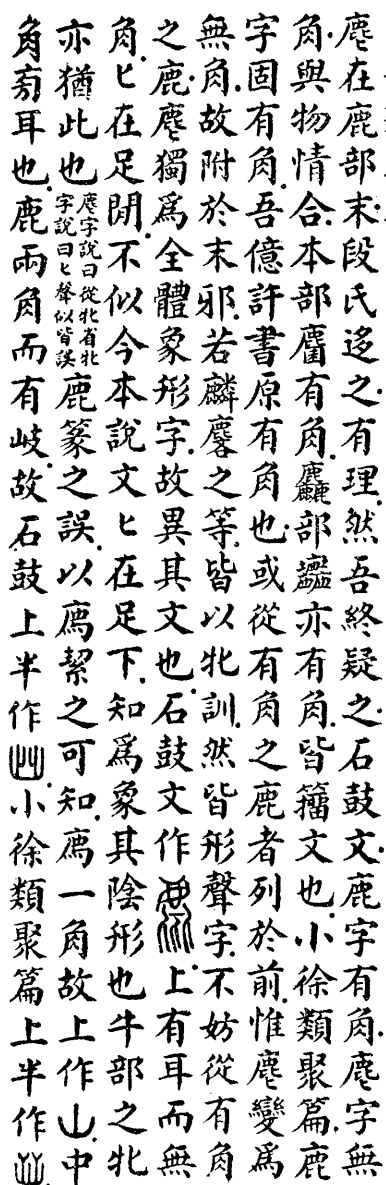 麀在鹿部末段氏迻之有理然吾終疑之石鼓文鹿字有角麀字無
角與物情合本部麕有角麤部亦有角皆籀文也小徐類聚篇鹿
字固有角吾億許書原有角也或從有角之鹿者列於前惟麀變爲
無角故附於末邪若麟麐之等皆以牝訓然皆形聲字不妨從有角
之鹿麀獨爲全體象形字故異其文也石鼓文作上有耳而無
角匕在足閒不似今本說文匕在足下知爲象其陰形也牛部之牝
亦猶此也麀字說曰從牝省牝字說曰匕聲似皆誤鹿篆之誤以廌絜之可知廌一角故上作山中
角㫄耳也鹿兩角而有岐故石鼓上半作小徐類聚篇上半作